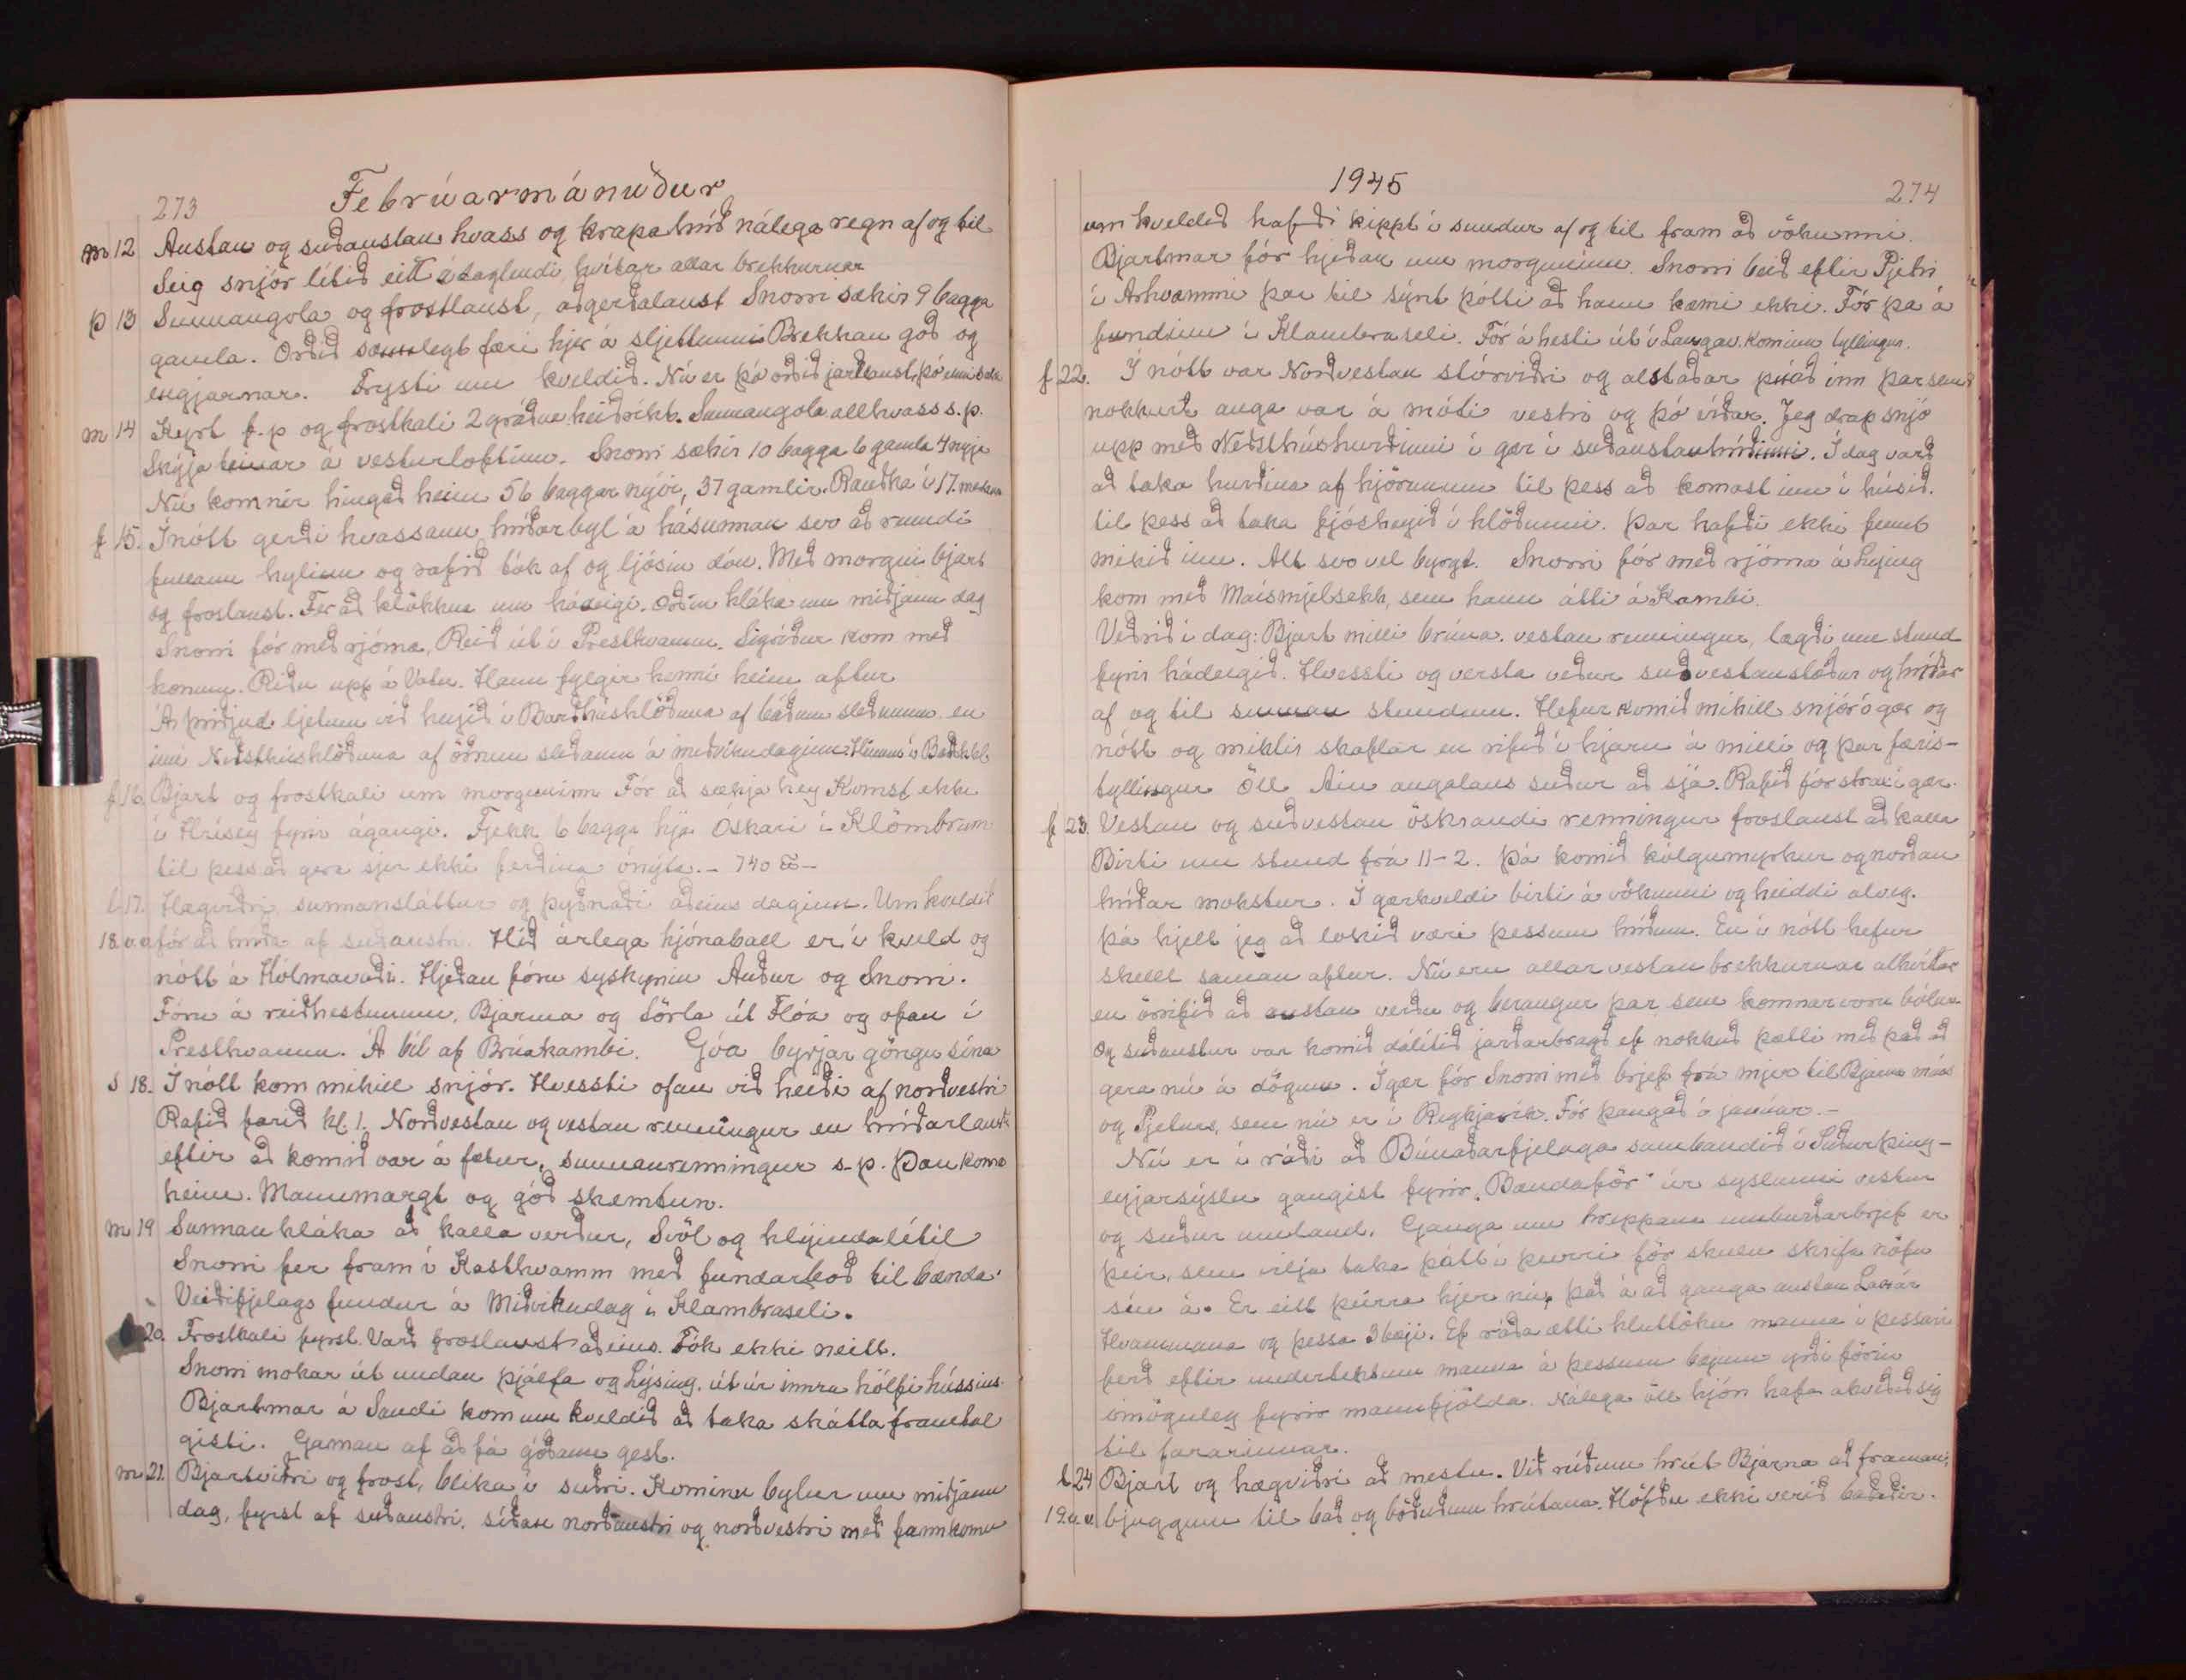 273
Febrúarmánuður
m 12 Austan og suðaustan hvass og krapahríð nálega regn af og til
Seig snjór lítið eitt á láglendi, hvítar allar brekkurnar
þ 13 Sunnangola og frostlaust, aðgerðalaust Snorri sækir 9 bagga
gamla. Orðið sæmilegt færi hjer á sljettunni Brekkan góð og
engjarnar. Frysti um kveldið. Nú er þó orðið jarðlaust, þó
m 14 Kyrt f.p og frostkali 2 gráður heiðríkt. Sunnangola allhvass s.p.
Skýja teinar á vesturloftinu. Snorri sækir 10 bagga 6 gamla 4 nýja
Nú komnir hingað heim 56 baggar nýir, 37 gamlir. Rauðka í 17.
f 15. Í nótt gerði hvassann hríðarbyl á hásunnan svo að rendi
fullann hylinn og rafið tók af og ljósin dóu. Með morgni bjart
og frostlaust. Fer að klökkna um hádeigi, orðin hláka um miðjann dag
Snorri fór með rjóma, Reið út í Presthvamm. Sigríður kom með
honum. Riðu upp á Vatn. Hann fylgir henni heim aftur
Á þriðjud. ljetum við heyið í Barðhúshlöðuna af báðum sleðunum en
inní Neðsthúshlöðuna af öðrum sleðanum á miðvikudaginn. Hinum í
f 16. Bjart og frostkali um morguninn Fór að sækja hey Komst ekki
í Hrísey fyrir ágangi. Fjekk 6 bagga hjá Óskari í Klömbrum
til þess að gera sjer ekki ferðina ónýta. - 740 ℔ -
l 17. Hægviðri sunnansláttur og þyðnaði aðeins daginn. Um kveldið
18. v.a fór að hríða af suðaustri. Hið árlega hjónaball er í kveld og
nótt á Hólmavaði. Hjeðan fóru syskynin Auður og Snorri.
Fóru á reiðhestunum, Bjarma og Sörla út Flóa og ofan í
Presthvamm. Á bíl af Brúakambi. Góa byrjar göngu sína
S 18. Í nótt kom mikill snjór. Hvessti ofan við heiði af norðvestri
Rafið farið kl. 1. Norðvestan og vestan renningur en hríðarlaust
eftir að komið var á fætur, sunnanrenningur s.p. Þau koma
heim. Mannmargt og góð skemtun.
m 19 Sunnan hláka að kalla verður, Svöl og hlýindalítil
Snorri fer fram í Kasthvamm með fundarboð til bænda.
Veiðifjelags fundur á Miðvikudag í Klambraseli.
20. Frostkali fyrst. Varð frostlaust aðeins. Tók ekki neitt.
Snorri mokar út undan þjálfa og Lýsing. út úr innra hólfi hússins
Bjartmar á Sandi kom um kveldið að taka skátta framtal
gisti. Gaman af að fá góðann gest.
m 21. Bjartviðri og frost, blika í suðri. Kominn bylur um miðjann
dag, fyrst af suðaustri. síðan norðaustri og norðvestri með fannkomu
1945
274
um kveldið hafði kippt í sundur af og til fram að vökunni.
Bjartmar fór hjeðan um morguninn. Snorri beið eftir Pjetri
í Árhvammi þar til sýnt þótti að hann kæmi ekki. Fór þá á
fundinn í Klambraseli. Fór á hesti út í Langav. kominn byllingur.
f 22. Í nótt var Norðvestan stórviðri og alstaðar það inn þar sem
nokkurt auga var á móti vestri og þó víðar. Jeg drap snjó
upp með Neðsthúshurðinni í gær í suðaustanhríðinni. Í dag varð
að taka hurðina af hjörunum til þess að komast inn í húsið.
til þess að taka fjósheyið í hlöðunni. Þar hafði ekki fennt
mikið inn. Alt svo vel byrgt. Snorri fór með rjóma á Lýsing
kom með Maísmjölsekk, sem hann átti á Kambi.
Veðrið í dag: Bjart milli brúna. vestan renningur, lægði um stund
fyrir hádegið. Hvessti og versta veður suðvestanstæður og hríðar
af og til sunnan stundum. Hefur komið mikill snjór í gær og
nótt og miklir skaflar en rifið í hjarn á milli og þar færis-
byllingur öll Áin augalaus suður að sjá. Rafið fór strax í gær.
f 23. Vestan og suðvestan öskrandi renningur frostlaust að kalla
Birti um stund frá 11-2. Þá komið kólgumyrkur og norðan
hríðar mokstur. Í gærkveldi birti á vökunni og heiddi alveg.
Þá hjelt jeg að lokið væri þessum hríðum. En í nótt hefur
skellt saman aftur. Nú eru allar vestan brekkurnar alhvítar
en örrifið að austan verðu og berangur þar sem komnar voru bólur
Og suðaustur var komið dálítið jarðarbragð ef nokkuð þætti með það að
gera nú á dögum. Í gær fór Snorri með brjef frá mjer til Bjarna
og Pjeturs, sem nú er í Reykjavík. Fór þangað í janúar.-
Nú er í ráði að Búnaðarfjelaga sambandið í Suðurþing-
eyjarsýslu gangist fyrir „Bændaför" úr sýslunni vestur
og suður umland. Ganga um hreppana umburðarbrjef er
þeir, sem vilja taka þátt í þeirri för skulu skrifa nöfn
sín á. Er eitt þeirra hjer nú, það á að ganga austan Laxár
Hvammana og þessa 3 bæji. Ef ráða ætti hluttöku manna í þessari
ferð eftir undirtektum manna á þessum bæjum yrði förin
ómöguleg fyrir mannfjölda. Nálega öll hjón hafa ákveðið sig
til fararinnar.
l. 24 Bjart og hægviðri að mestu. Við rúðum hrút Bjarna að framan,
19. v. bjuggum til bað og böðuðum hrútana. Höfðu ekki verið baðaðir.